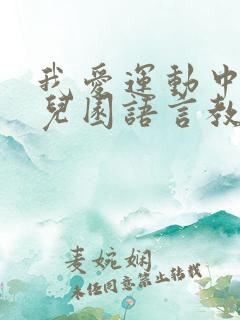 我愛運動中
兒園語言教
麦婉娴
未任同意禁止转载